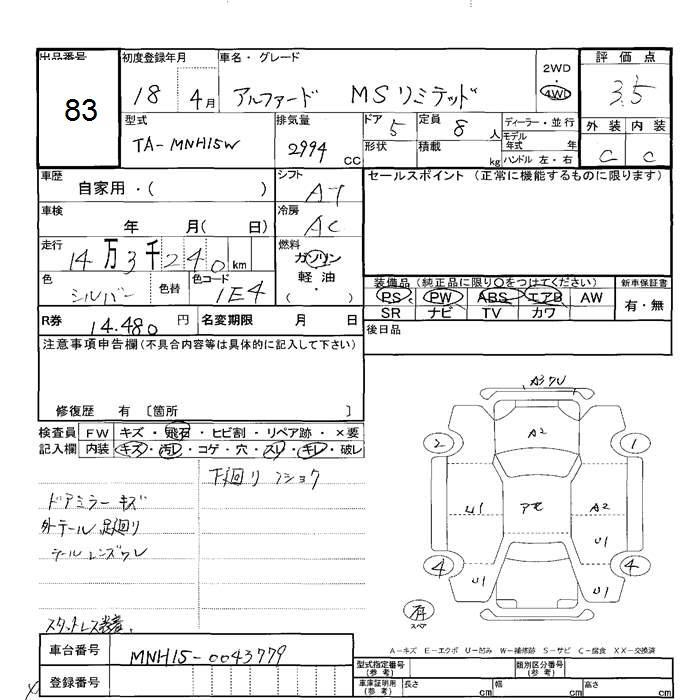 出品番号 83
初度登録年月 18 4月
車名・グレード アルファード MSリミテッド
2WD・4WD
評価点 3.5
外装 C 内装 C
型式 TA-MNH15W
排気量 2994 cc
ドア 5 形状
定員 8 人 積載 kg
ディーラー・並行
モデル年式 年
ハンドル 左・右
車歴 自家用・( )
シフト AT
セールスポイント (正常に機能するものに限ります)
車検 年 月( 日)
冷房 AC
走行 14万3千240km
燃料 ガソリン 軽油・( )
色 シルバー 色替 色コード 1E4
装備品 (純正品に限り○をつけてください) 新車保証書
PS PW ABS エアB AW 有・無
SR ナビ TV カワ
R券 14.480円 名変期限 月 日
後日品
注意事項申告欄(不具合内容等は具体的に記入して下さい)
修復歴 有 〔箇所 〕
検査員 FW キズ・飛石・ヒビ割・リペア跡・×要
記入欄 内装 キズ・汚レ・コゲ・穴・スリ・キレ・破レ
下廻り
ドアミラーキズ
外テール
テールレンズワレ
A3 A2
2 1
U1 A2
U1
4 4
U1 U1
有
スペア
A-キズ E-エクボ U-凹み W-補修跡 S-サビ C-腐食 XX-交換済
車台番号 MNH15-0043779
登録番号
型式指定番号(参考) 類別区分番号(参考)
車庫証明用(参考) 長さ cm 幅 cm 高さ cm